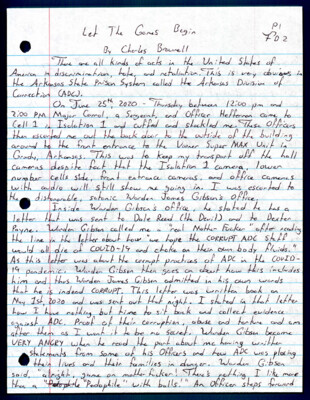 P1
of 2
Let The Games Begin
By Charles Brownell
There are all kinds of acts in the United States of
America in discrimination, hate, and retaliation. This is very obvious in
the Arkansas State Prison System called the Arkansas Division of
Correction (ADC).
On June 25th 2020 - Thursday between 12:00 pm and
2:00 PM Major Carroll, a Sergeant, and Officer Heffernan came to
Cell 1 in Isolation 1 and cuffed and shackled me. These Officers
then escorted me out the back door to the outside of the building
around to the front entrance to the Varner Super MAX Unit in
Grady, Arkansas. This was to keep my transport off the hall
cameras despite fact that the Isolation 1 camera, lower
number cells camera, front entrance cameras, and office cameras
with audio will still show me going in. I was escorted to
the dishonorable, Satanic Warden James Gibson's Office.
Inside Warden Gibson's Office, he stated he has a
letter that was sent to Dale Reed (the Devil) and to Dexter
Payne. Warden Gibson called me a "real Mother Fucker" after reading
the line in the letter about how "we hope the CORRUPT ADC Staff
would all die of COVID-19 and choke on their own body fluids."
As this letter was about the corrupt practices of ADC in the COVID-
19 pandemic. Warden Gibson then goes on about how this includes
him and thus Warden James Gibson admitted in his own words
that he is indeed CORRUPT. This letter was written back on
May 1st 2020 and was sent out that night. I stated in that letter
how I have nothing but time to sit back and collect evidence
against ADC. Proof of their corruption, abuse and torture and am
after them as I want it to be no secret. Warden Gibson became
VERY ANGRY when he read the part about me having written
statements from some of his Officers and how ADC was placing
their lives and their families in danger. Warden Gibson
said, "alright, game on mother fucker! There's nothing I like more
than a "Pedophile" with balls!" An Officer steps forward